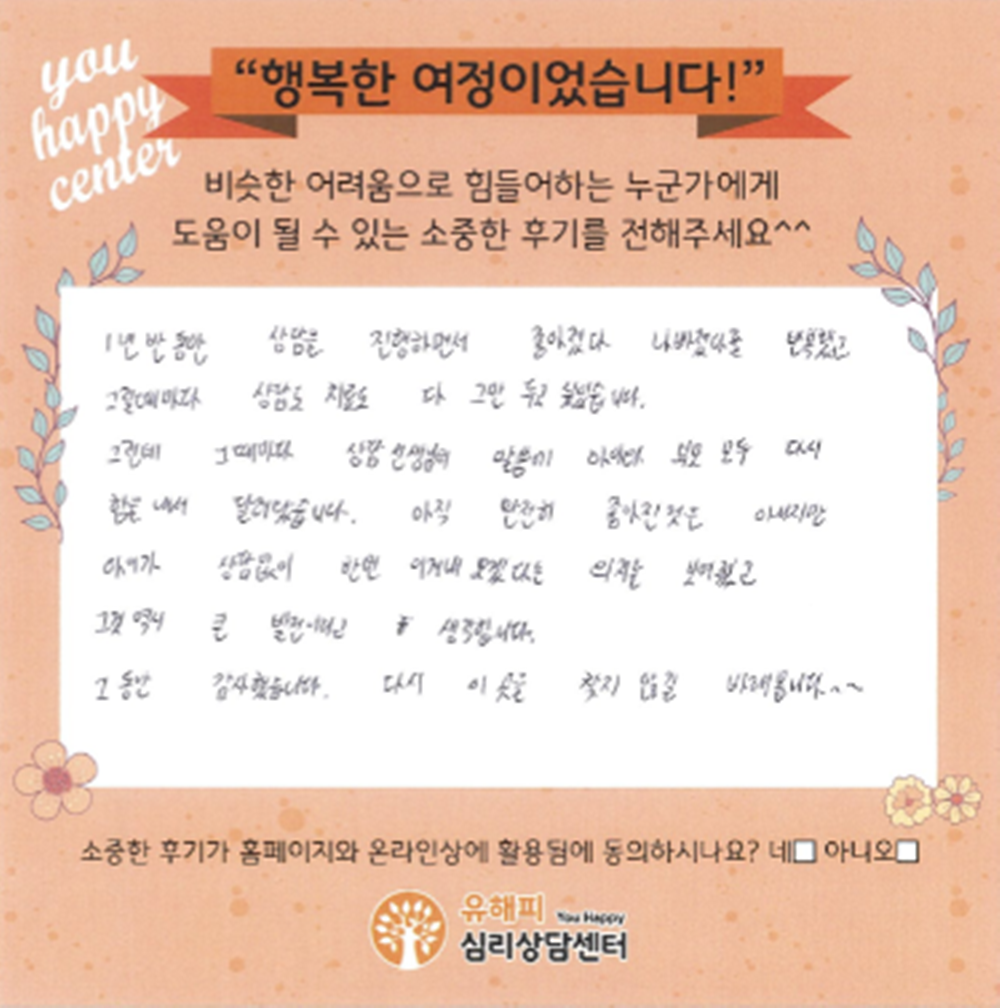 you
happy
center
“행복한 여정이었습니다!”
비슷한 어려움으로 힘들어하는 누군가에게
도움이 될 수 있는 소중한 후기를 전해주세요^^
1년 반 동안 상담을 진행하면서 좋아졌다 나빠졌다를 반복했고
그럴때마다 상담도 치료도 다 그만 두고 싶었습니다.
그런데 그때마다 상담 선생님의 말씀에 아이와 부모 모두 다시
힘을 내서 달려왔습니다. 아직 완전히 좋아진 것은 아니지만
아이가 상담없이 한번 이겨내 보겠다는 의지를 보여줬고
그것 역시 큰 발전이라고 생각합니다.
그 동안 감사했습니다. 다시 이 곳을 찾지 않길 바래봅니다.~~
소중한 후기가 홈페이지와 온라인상에 활용됨에 동의하시나요? 네□ 아니오□
유해피 You Happy
심리상담센터